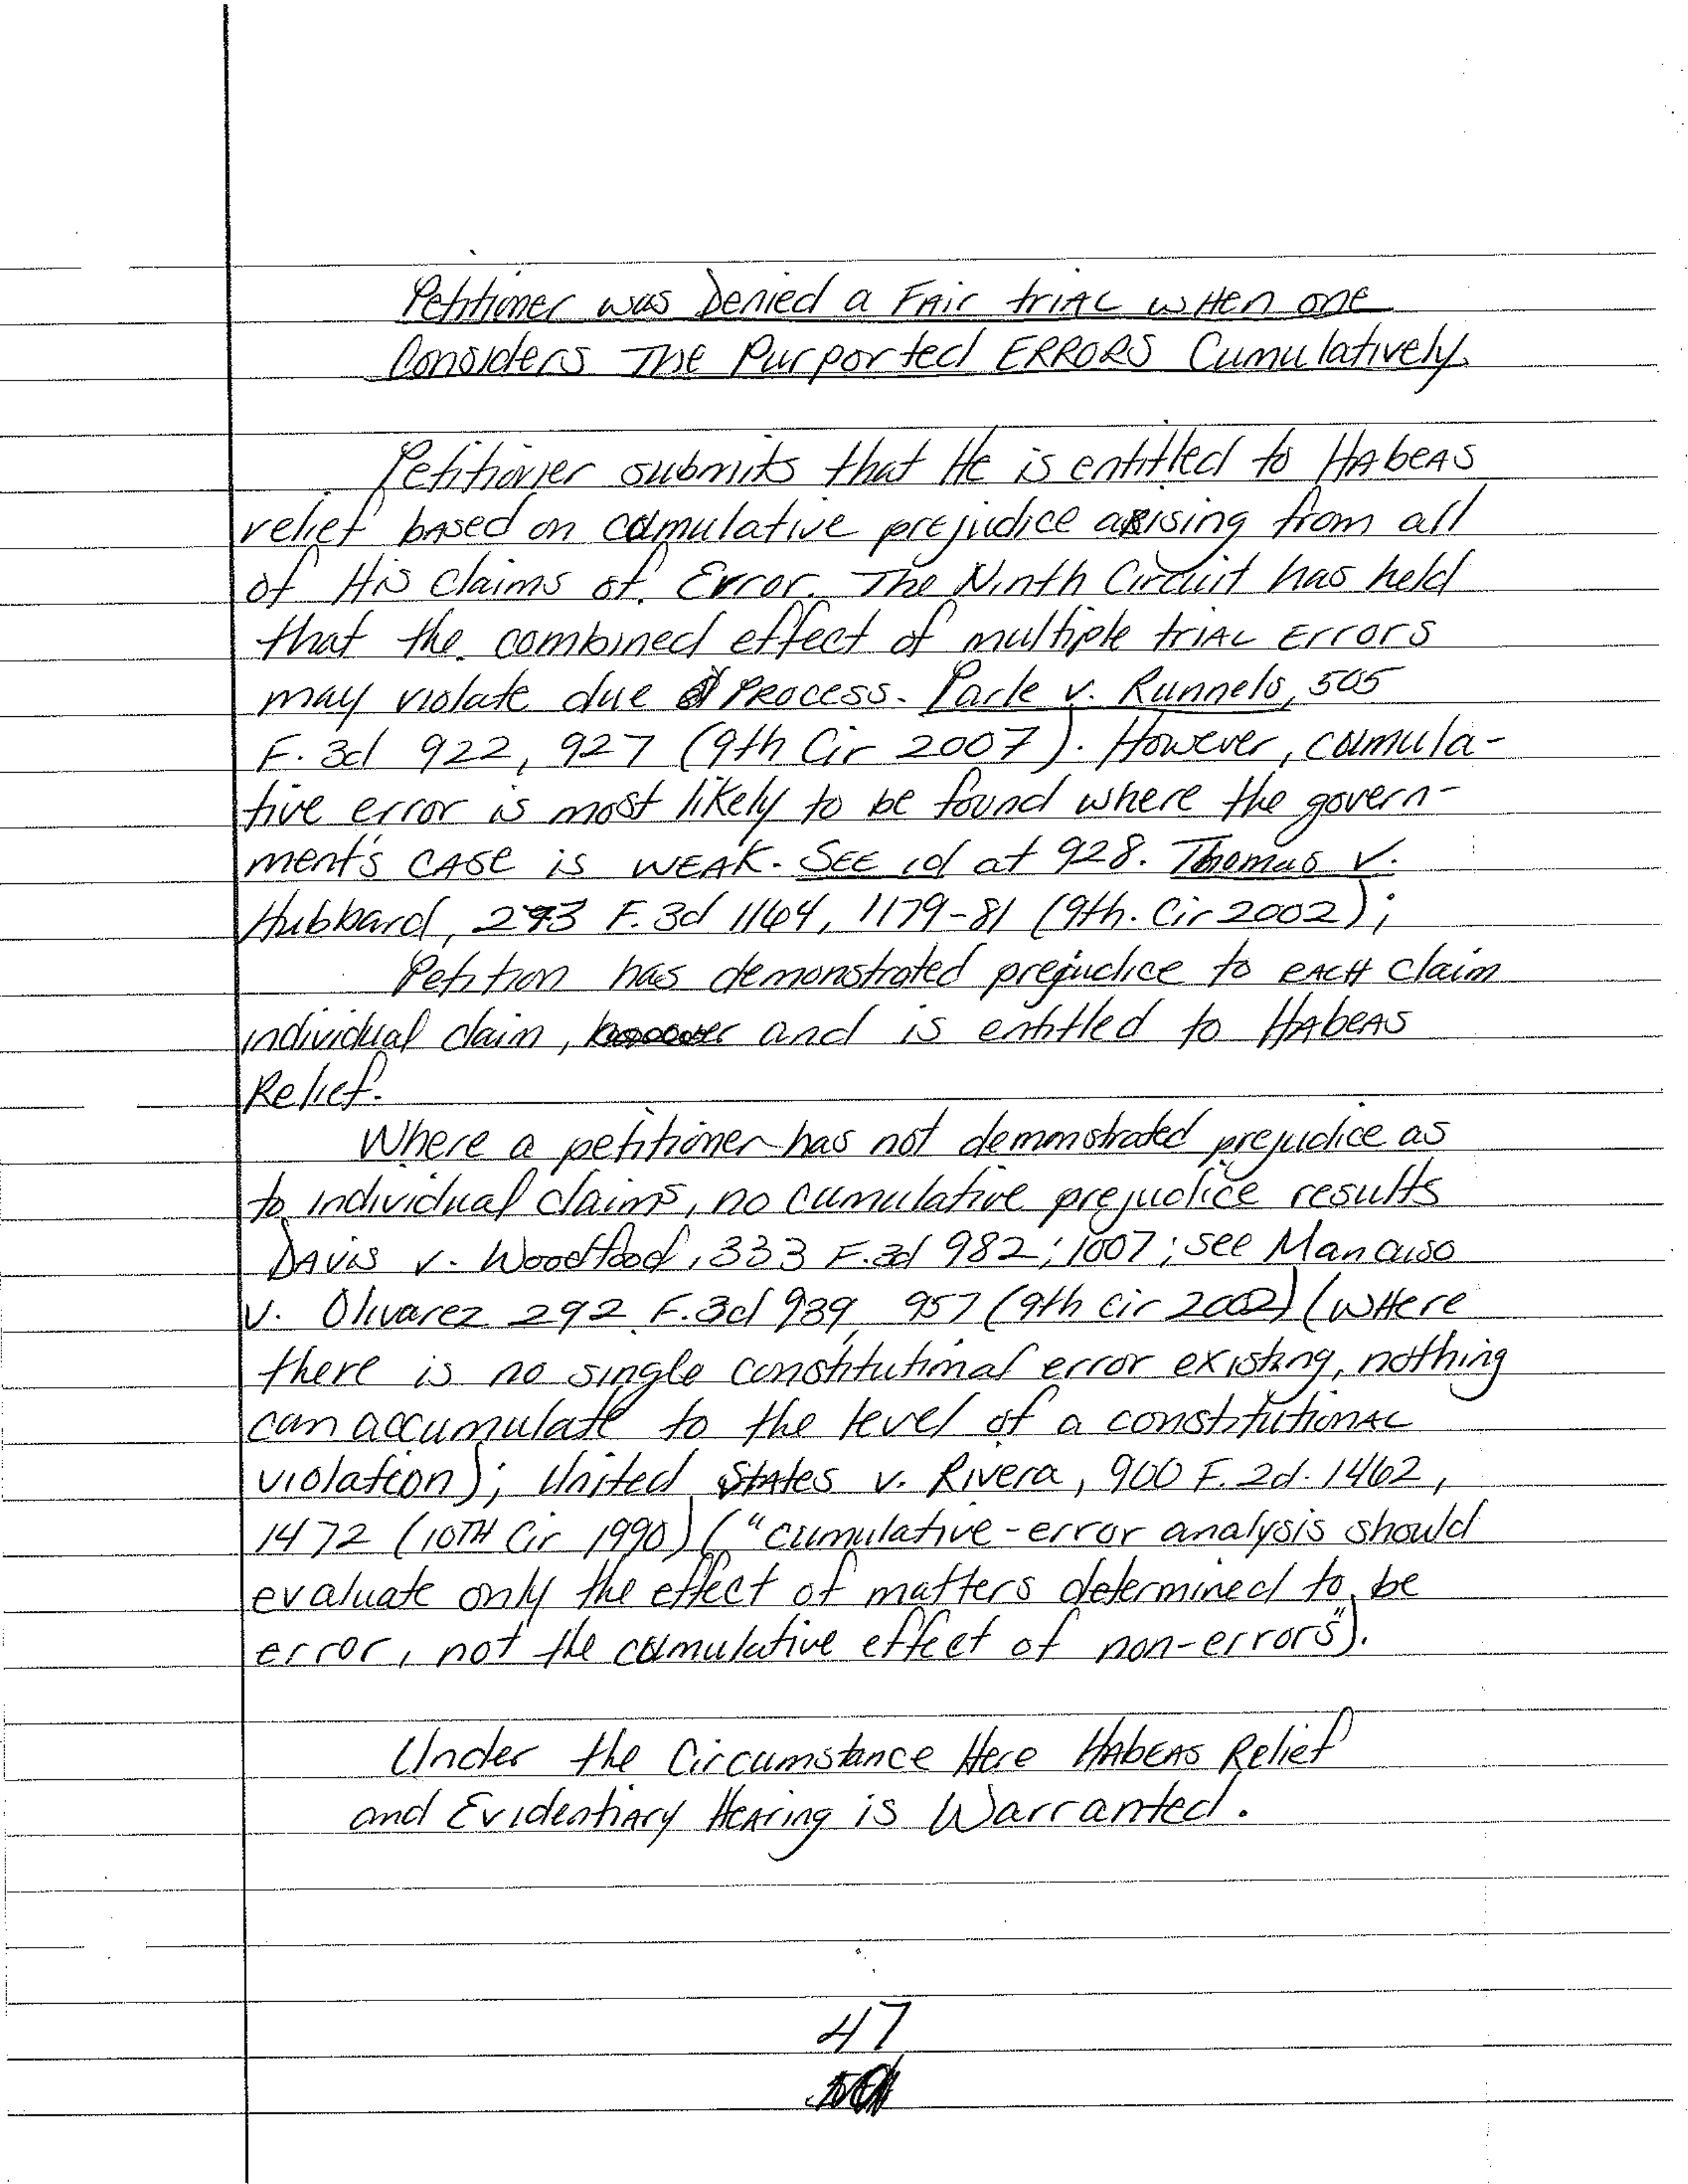 Petitioner was Denied a FAir triAL wHen one
Considers The Purported ERRORS Cumulatively.
Petitioner submits that He is entitled to HAbeAS
relief bAsed on cumulative prejudice arising from all
of His claims of Error. The Ninth Circuit has held
that the combined effect of multiple triAL Errors
may violate due PROCESS. Parle v. Runnels, 505
F.3d 922, 927 (9th Cir 2007). However, cumula-
tive error is most likely to be found where the govern-
ment's CASE is WEAK. SEE id at 928. Thomas v.
Hubbard, 273 F.3d 1164, 1179-81 (9th. Cir 2002);
Petition has demonstrated prejudice to EACH claim
individual claim, and is entitled to HAbeAS
Relief.
Where a petitioner has not demonstrated prejudice as
to individual claims, no cumulative prejudice results
DAvis v. Woodfood, 333 F.3d 982; 1007; see Mancuso
v. Olivarez 292 F.3d 939, 957 (9th cir 2002) (wHere
there is no single constitutional error existing, nothing
can accumulate to the level of a constitutionAL
violation); United States v. Rivera, 900 F.2d. 1462,
1472 (10TH Cir 1990) ("cumulative-error analysis should
evaluate only the effect of matters determined to be
error, not the cumulative effect of non-errors").
Under the Circumstance Here HAbEAS Relief
and EvidentiAry HEAring is Warranted.
47